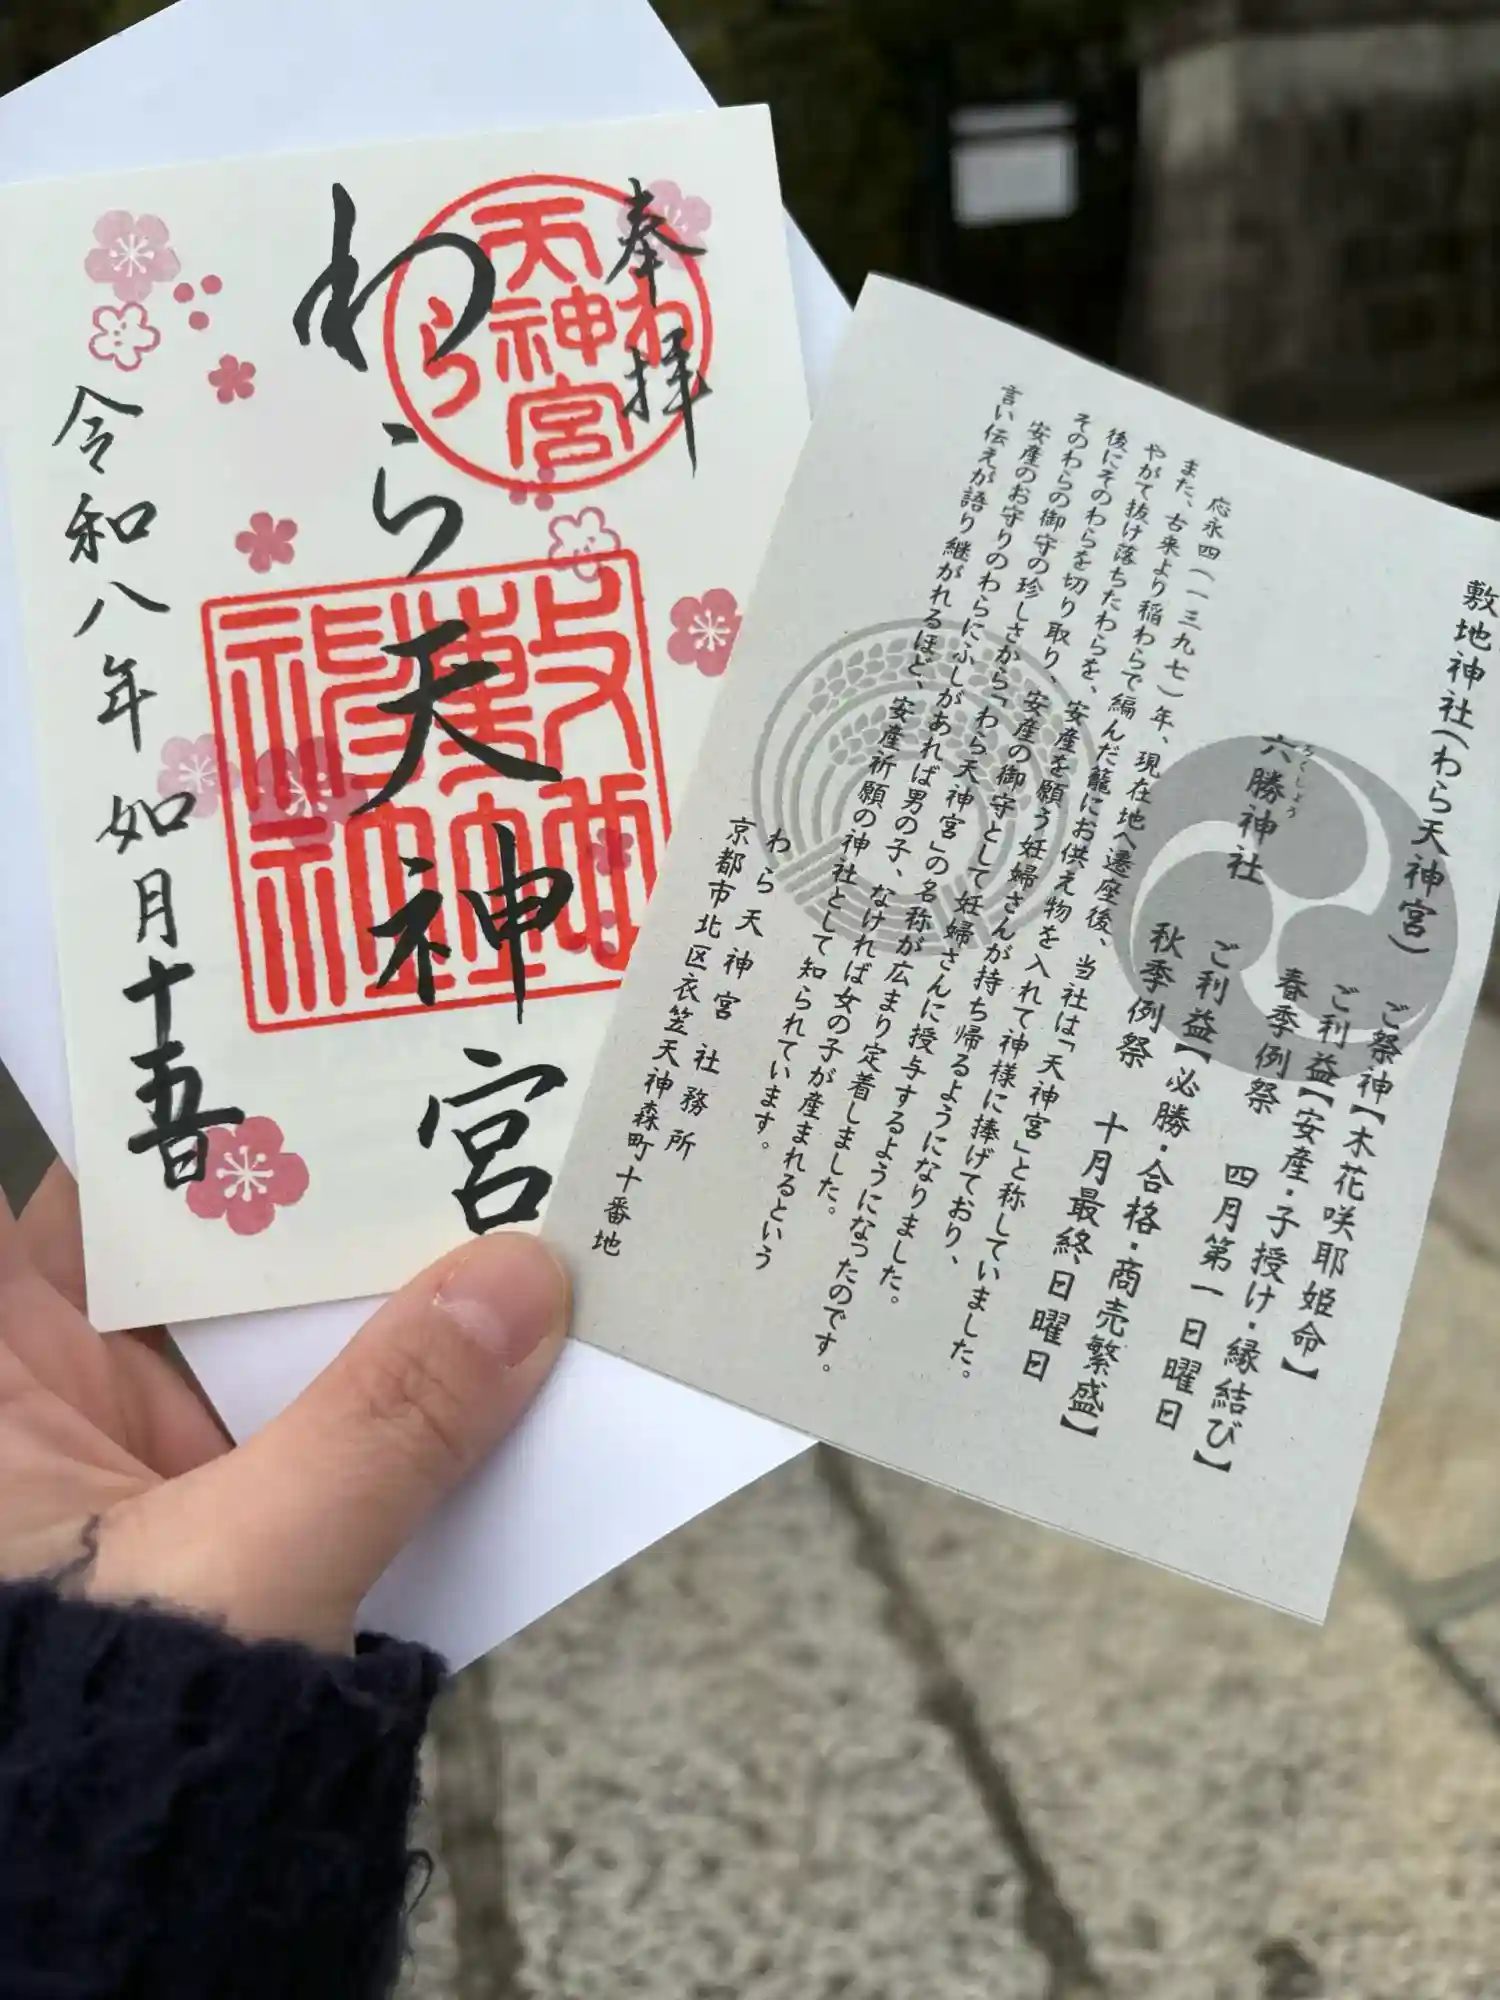 奉拝
わら天神宮
令和八年如月十五日
わら
天神宮
敷地神社
敷地神社(わら天神宮)
ご祭神【木花咲耶姫命】
ご利益【安産・子授け・縁結び】
春季例祭 四月第一日曜日
六勝神社
ろくしょう
ご利益【必勝・合格・商売繁盛】
秋季例祭 十月最終日曜日
応永四(一三九七)年、現在地へ遷座後、当社は「天神宮」と称していました。
また、古来より稲わらで編んだ籠にお供え物を入れて神様に捧げており、
やがて抜け落ちたわらを、安産を願う妊婦さんが持ち帰るようになりました。
後にそのわらを切り取り、安産の御守として妊婦さんに授与するようになったのです。
そのわらの御守の珍しさから「わら天神宮」の名称が広まり定着しました。
安産のお守りのわらにふしがあれば男の子、なければ女の子が産まれるという
言い伝えが語り継がれるほど、安産祈願の神社として知られています。
わら天神宮 社務所
京都市北区衣笠天神森町十番地